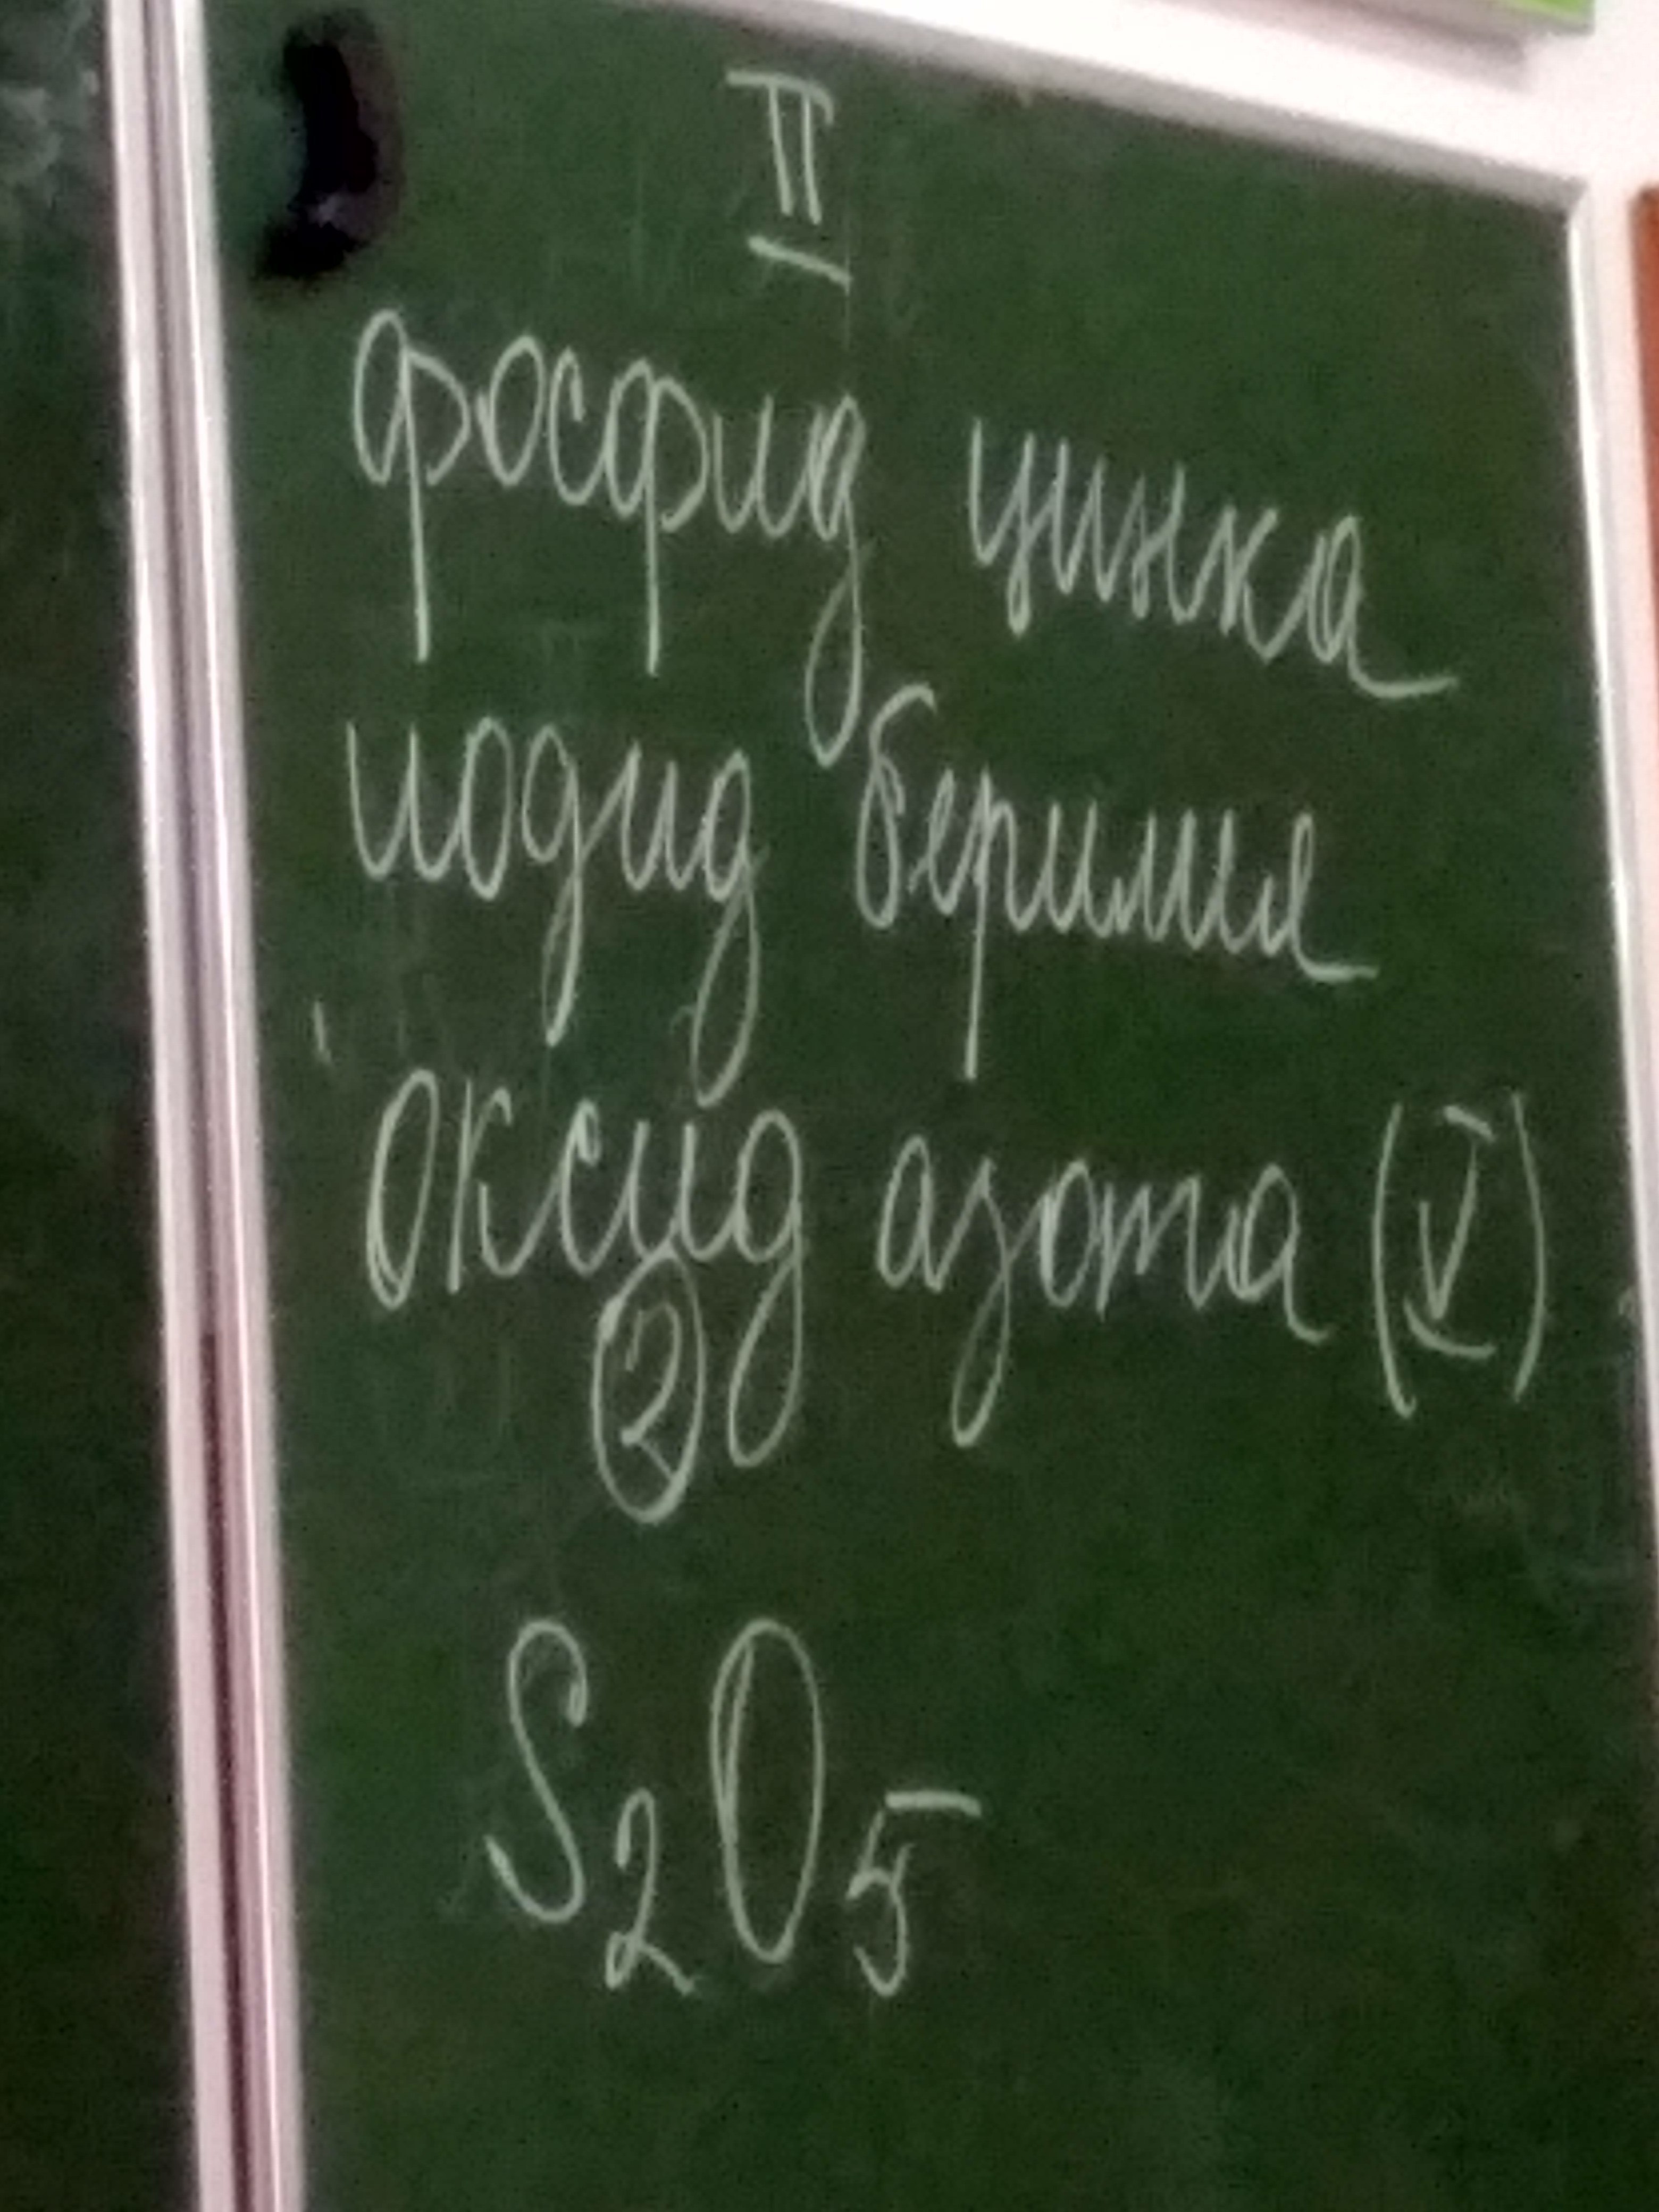 II
фосфид цинка
иодид берилия
оксид азота (V)
2
S₂O₅